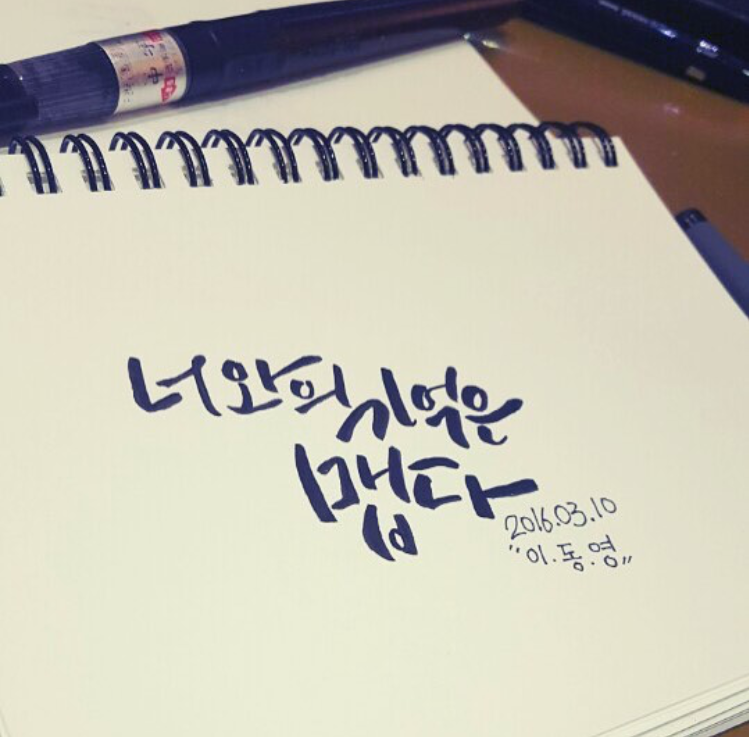 너와의 기억은
맵다
2016.03.10
"이.동.영"